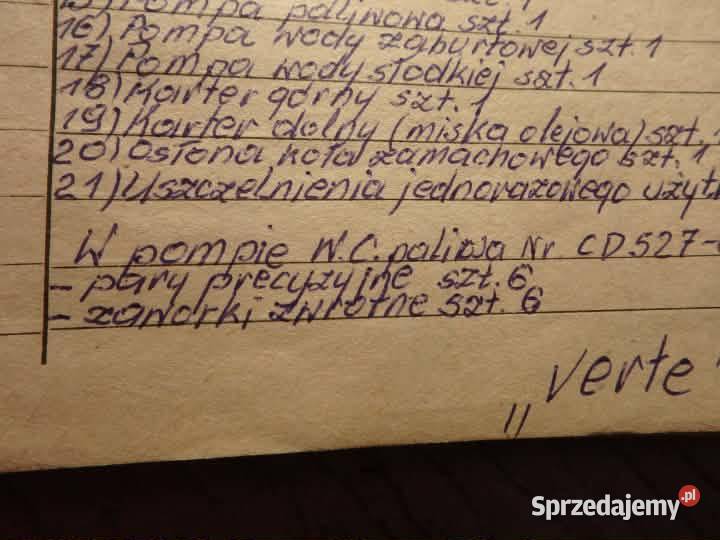 15) Pompa paliwowa szt. 1
16) Pompa wody zaburtowej szt. 1
17) Pompa wody słodkiej szt. 1
18) Karter górny szt. 1
19) Karter dolny (miska olejowa) szt.
20) Osłona koła zamachowego szt. 1
21) Uszczelnienia jednorazowego użyt
W pompie W.C. paliwa Nr CD527-
- pary precyzyjne szt. 6
- zaworki zwrotne szt. 6
„Verte"
Sprzedajemy.pl